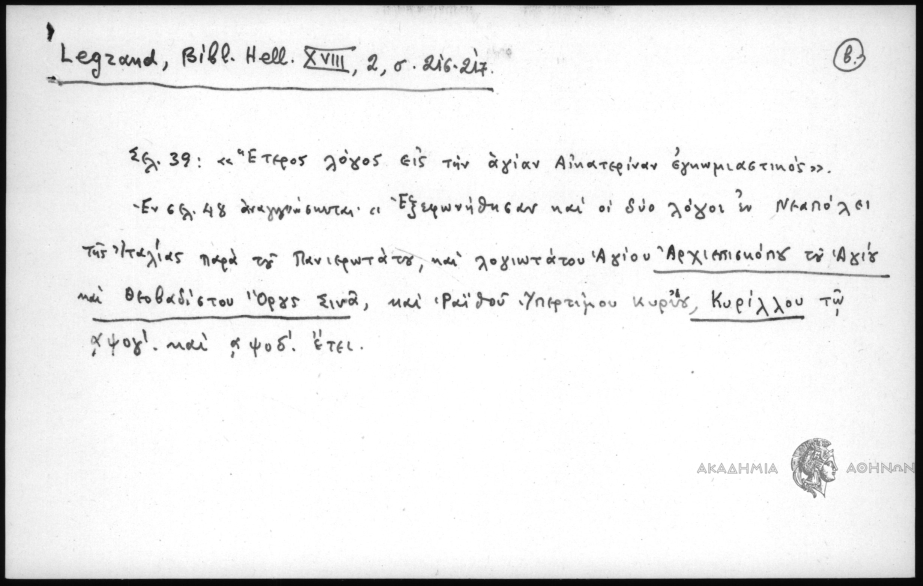 Legrand, Bibl. Hell. XVIII, 2, σ. 216-217.
β.
Σελ. 39: «Ἕτερος λόγος εἰς τὴν ἁγίαν Αἰκατερίναν ἐγκωμιαστικός».
Ἐν σελ. 48 ἀναγινώσκονται· «Ἐξεφωνήθησαν καὶ οἱ δύο λόγοι ἐν Νεαπόλει
τῆς Ἰταλίας παρὰ τοῦ Πανιερωτάτου, καὶ λογιωτάτου Ἁγίου Ἀρχιεπισκόπου τοῦ Ἁγίου
καὶ Θεοβαδίστου Ὄρους Σινᾶ, καὶ Ῥαϊθοῦ Ὑπερτίμου κυρίου, Κυρίλλου τῷ
͵αψογʹ. καὶ ͵αψοδʹ. ἔτει.
ΑΚΑΔΗΜΙΑ ΑΘΗΝΩΝ